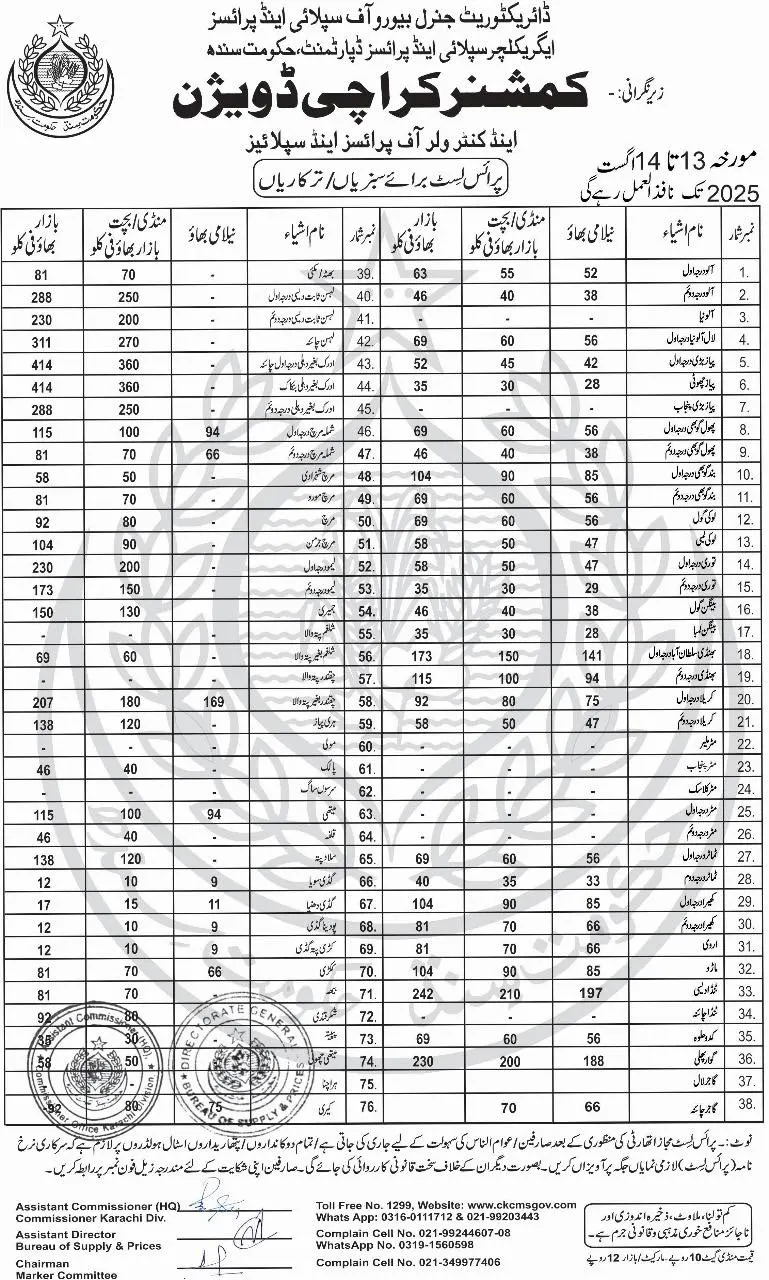 ڈائریکٹوریٹ جنرل بیورو آف سپلائی اینڈ پرائسز
ایگریکلچر سپلائی اینڈ پرائسز ڈپارٹمنٹ، حکومت سندھ
زیر نگرانی :-
کمشنر کراچی ڈویژن
اینڈ کنٹرولر آف پرائسز اینڈ سپلائیز
مورخہ 13 تا 14 اگست
2025 تک نافذ العمل رہے گی
پرائس لسٹ برائے سبزیاں/ترکاریاں
نمبر شمار نام اشیاء نیلامی بھاؤ منڈی/بچت بازار بھاؤ فی کلو بازار بھاؤ فی کلو
1. آلو درجہ اول 52 55 63
2. آلو درجہ دوئم 38 40 46
3. آلو نیا - - -
4. لال آلو نیا درجہ اول 56 60 69
5. پیاز بڑی درجہ اول 42 45 52
6. پیاز چھوٹی 28 30 35
7. پیاز بڑی پنجاب - - -
8. پھول گوبھی درجہ اول 56 60 69
9. پھول گوبھی درجہ دوئم 38 40 46
10. بند گوبھی درجہ اول 85 90 104
11. بند گوبھی درجہ دوئم 56 60 69
12. لوکی گول 56 60 69
13. لوکی لمبی 47 50 58
14. توری درجہ اول 47 50 58
15. توری درجہ دوئم 29 30 35
16. بینگن گول 38 40 46
17. بینگن لمبا 28 30 35
18. بھنڈی سلطان آباد درجہ اول 141 150 173
19. بھنڈی درجہ دوئم 94 100 115
20. کریلا درجہ اول 75 80 92
21. کریلا درجہ دوئم 47 50 58
22. مٹر ملیر - - -
23. مٹر پنجاب - - -
24. مٹر کلاسک - - -
25. مٹر درجہ اول - - -
26. مٹر درجہ دوئم - - -
27. ٹماٹر درجہ اول 56 60 69
28. ٹماٹر درجہ دوم 33 35 40
29. کھیرا درجہ اول 85 90 104
30. کھیرا درجہ دوئم 66 70 81
31. اروی 66 70 81
32. ماڑو 85 90 104
33. ٹنڈا دیسی 197 210 242
34. ٹنڈا چائنہ - - -
35. کدو حلوہ 56 60 69
36. گوار پھلی 188 200 230
37. گاجر لال - - -
38. گاجر چائنہ 66 70
نمبر شمار نام اشیاء نیلامی بھاؤ منڈی/بچت بازار بھاؤ فی کلو بازار بھاؤ فی کلو
39. بھٹہ/مکئی - 70 81
40. لہسن ثابت دیسی درجہ اول - 250 288
41. لہسن ثابت دیسی درجہ دوئم - 200 230
42. لہسن چائنہ - 270 311
43. ادرک بغیر دھلی درجہ اول چائنہ - 360 414
44. ادرک بغیر دھلی بنکاک - 360 414
45. ادرک بغیر دھلی درجہ دوئم - 250 288
46. شملہ مرچ درجہ اول 94 100 115
47. شملہ مرچ درجہ دوئم 66 70 81
48. مرچ شہزادی - 50 58
49. مرچ مورو - 70 81
50. مرچ - 80 92
51. مرچ جرمن - 90 104
52. لیمو درجہ اول - 200 230
53. لیمو درجہ دوئم - 150 173
54. جمیری - 130 150
55. شلغم پتہ والا - - -
56. شلغم بغیر پتہ والا - 60 69
57. چقندر پتہ والا - - -
58. چقندر بغیر پتہ والا 169 180 207
59. ہری پیاز - 120 138
60. مولی - - -
61. پالک - 40 46
62. سرسوں ساگ - - -
63. میتھی 94 100 115
64. قلفہ - 40 46
65. سلاد پتہ - 120 138
66. گڈی سویا 9 10 12
67. گڈی دھنیا 11 15 17
68. پودینا گڈی 9 10 12
69. کڑی پتہ گڈی 9 10 12
70. ککڑی 66 70 81
71. - 70 81
72. شکرقندی 80 92
73. پپیتہ 30 35
74. میتھی چھوٹی 50 58
75. ہرا چنا
76. کیری 75 80 92
Assistant Commissioner (HQ)
Commissioner Office Karachi Division
DIRECTORATE GENERAL
BUREAU OF SUPPLY & PRICES
نوٹ :- پرائس لسٹ مجاز اتھارٹی کی منظوری کے بعد صارفین / عوام الناس کی سہولت کے لیے جاری کی جاتی ہے / تمام دوکانداروں / پتھاریداروں اسٹال ہولڈروں پر لازم ہے کہ سرکاری نرخ
نامہ (پرائس لسٹ) لازمی نمایاں جگہ پر آویزاں کریں۔ بصورت دیگر ان کے خلاف سخت قانونی کارروائی کی جائے گی۔ صارفین اپنی شکایت کے لئے مندرجہ زیل فون نمبر پر رابطہ کریں۔
Assistant Commissioner (HQ)
Commissioner Karachi Div.
Assistant Director
Bureau of Supply & Prices
Chairman
Marker Committee
Toll Free No. 1299, Website: www.ckcmsgov.com
Whats App: 0316-0111712 & 021-99203443
Complain Cell No. 021-99244607-08
WhatsApp No. 0319-1560598
Complain Cell No. 021-349977406
کم تولنا، ملاوٹ، ذخیرہ اندوزی اور
ناجائز منافع خوری مذہبی و قانونی جرم ہے۔
قیمت منڈی گیٹ 10 روپے۔ مارکیٹ/بازار 12 روپے